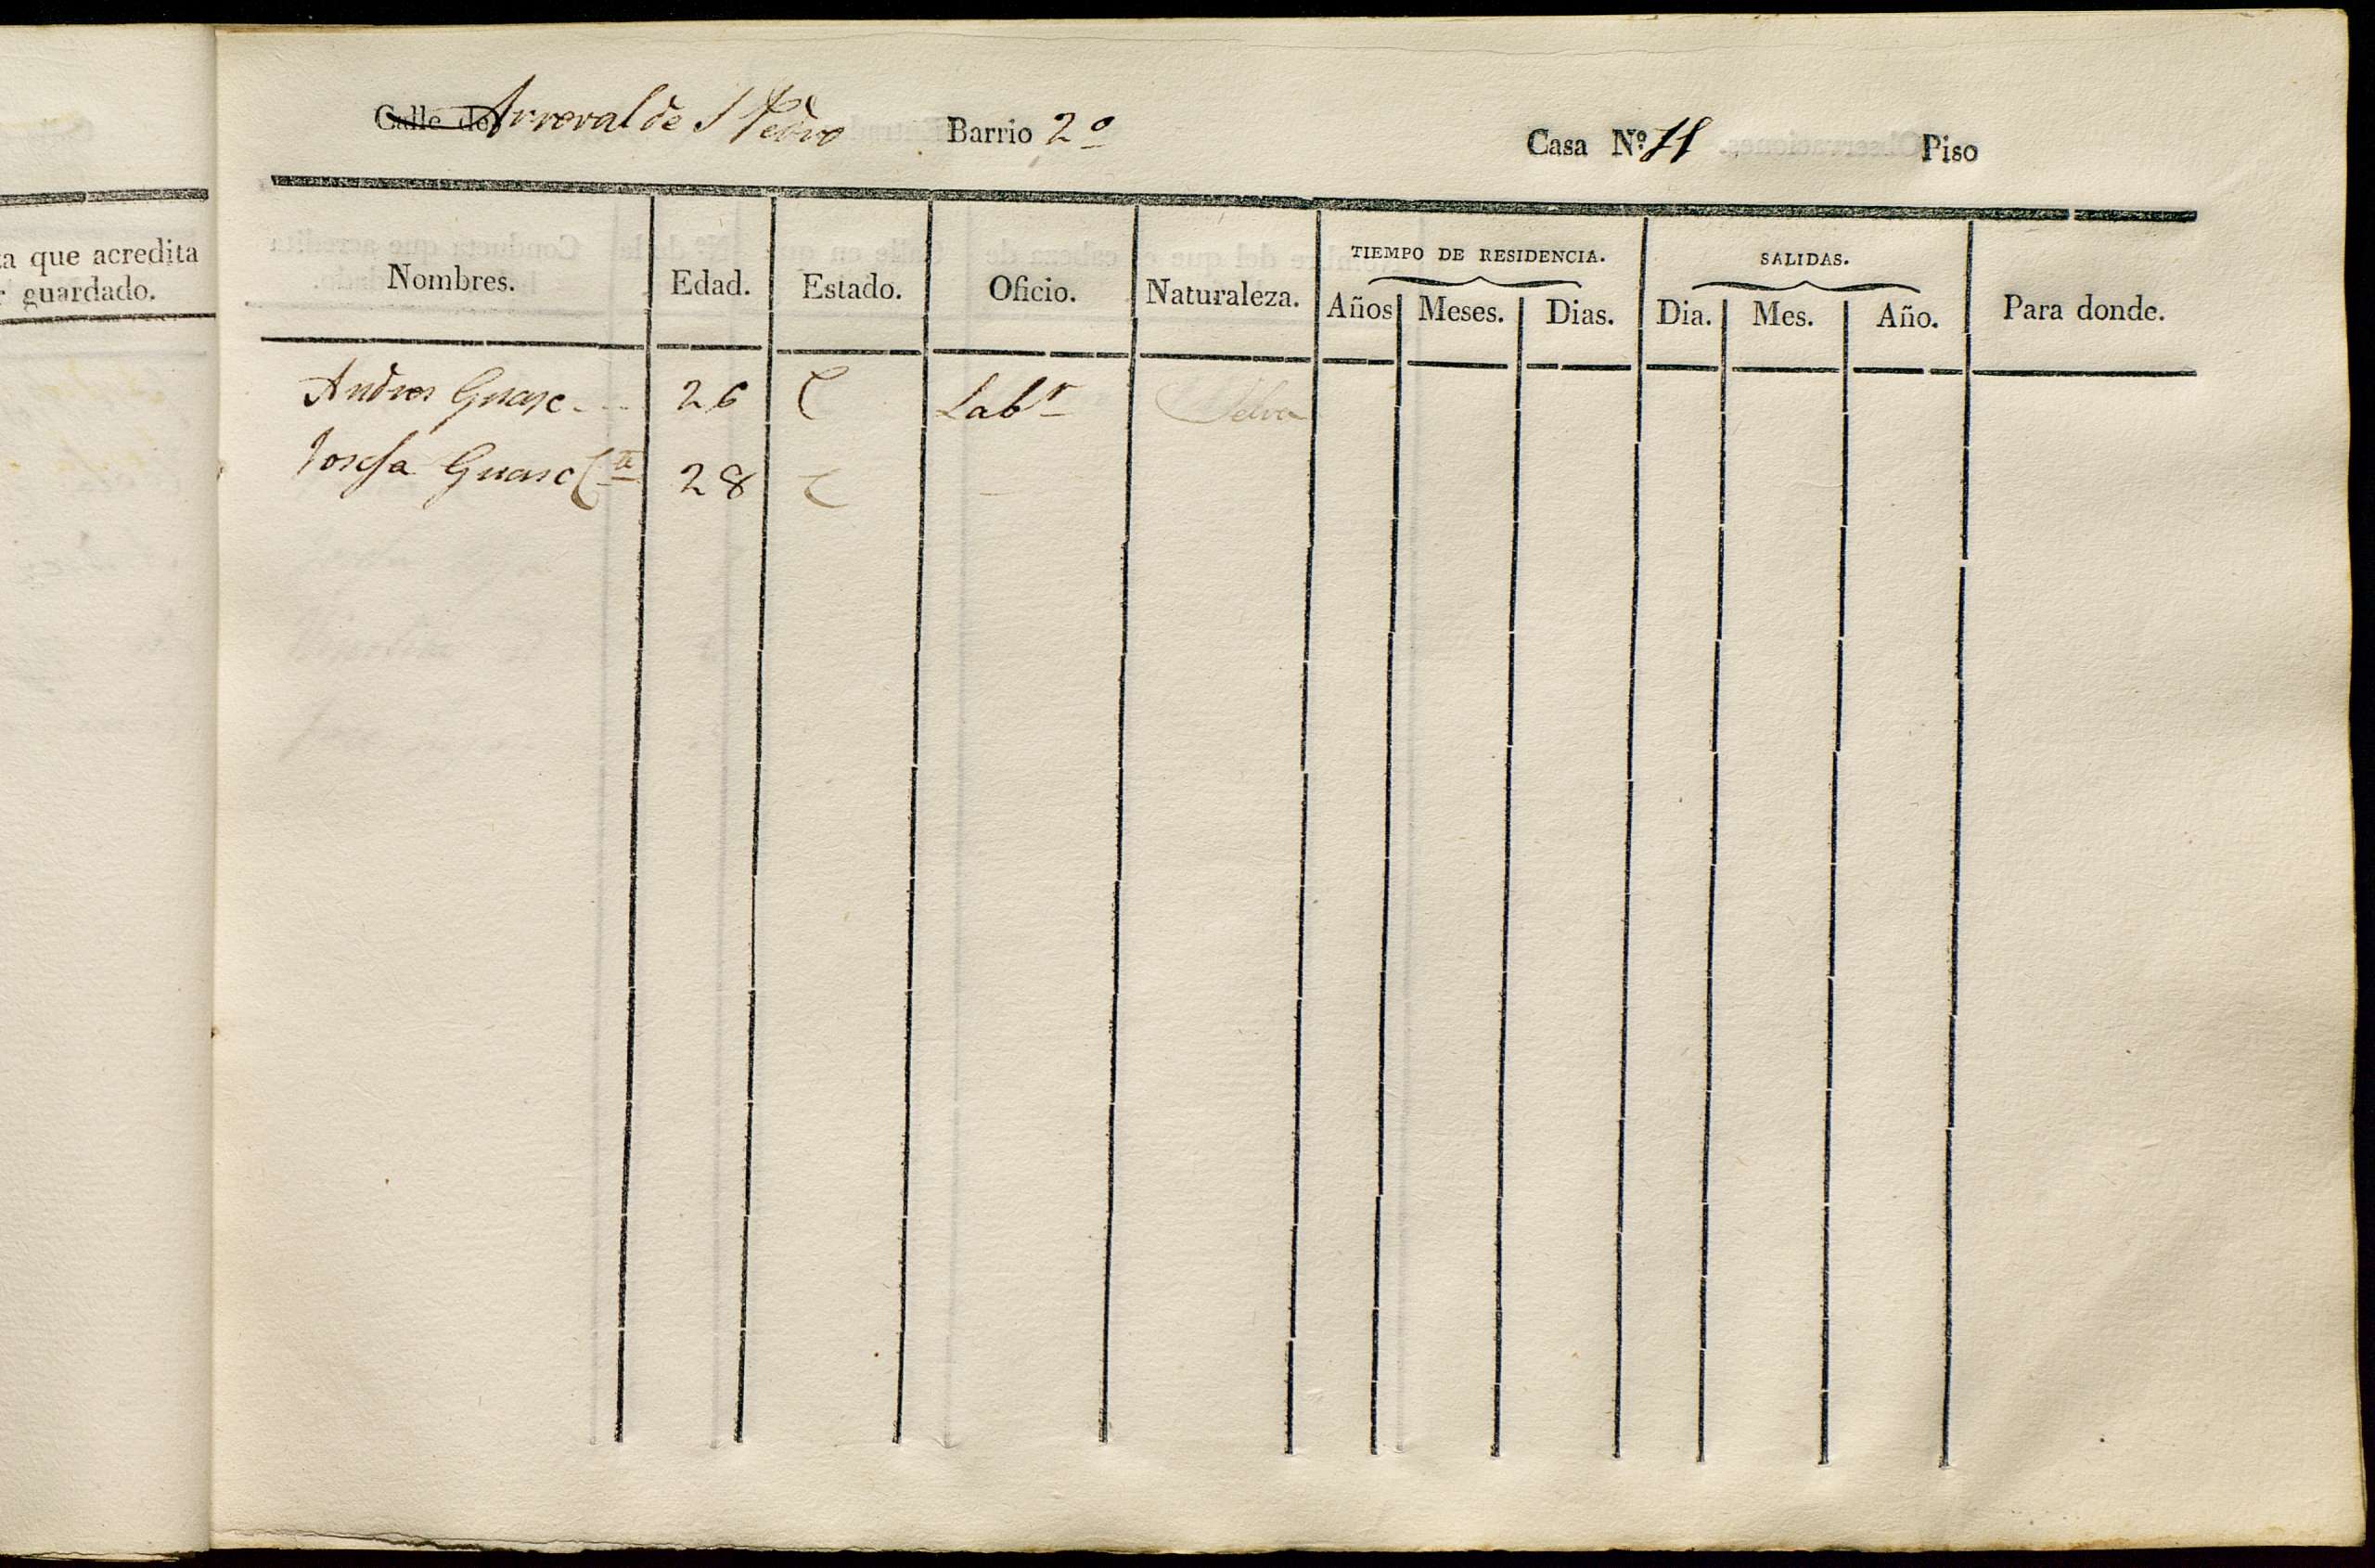 Calle de Arraval de S Pedro Barrio 2º Casa Nº 11 Piso
a que acredita
guardado.
TIEMPO DE RESIDENCIA. SALIDAS.
Nombres. Edad. Estado. Oficio. Naturaleza. Años Meses. Dias. Dia. Mes. Año. Para donde.
Andres Guasc 26 C Labr Selva
Josefa Guasc 28 C